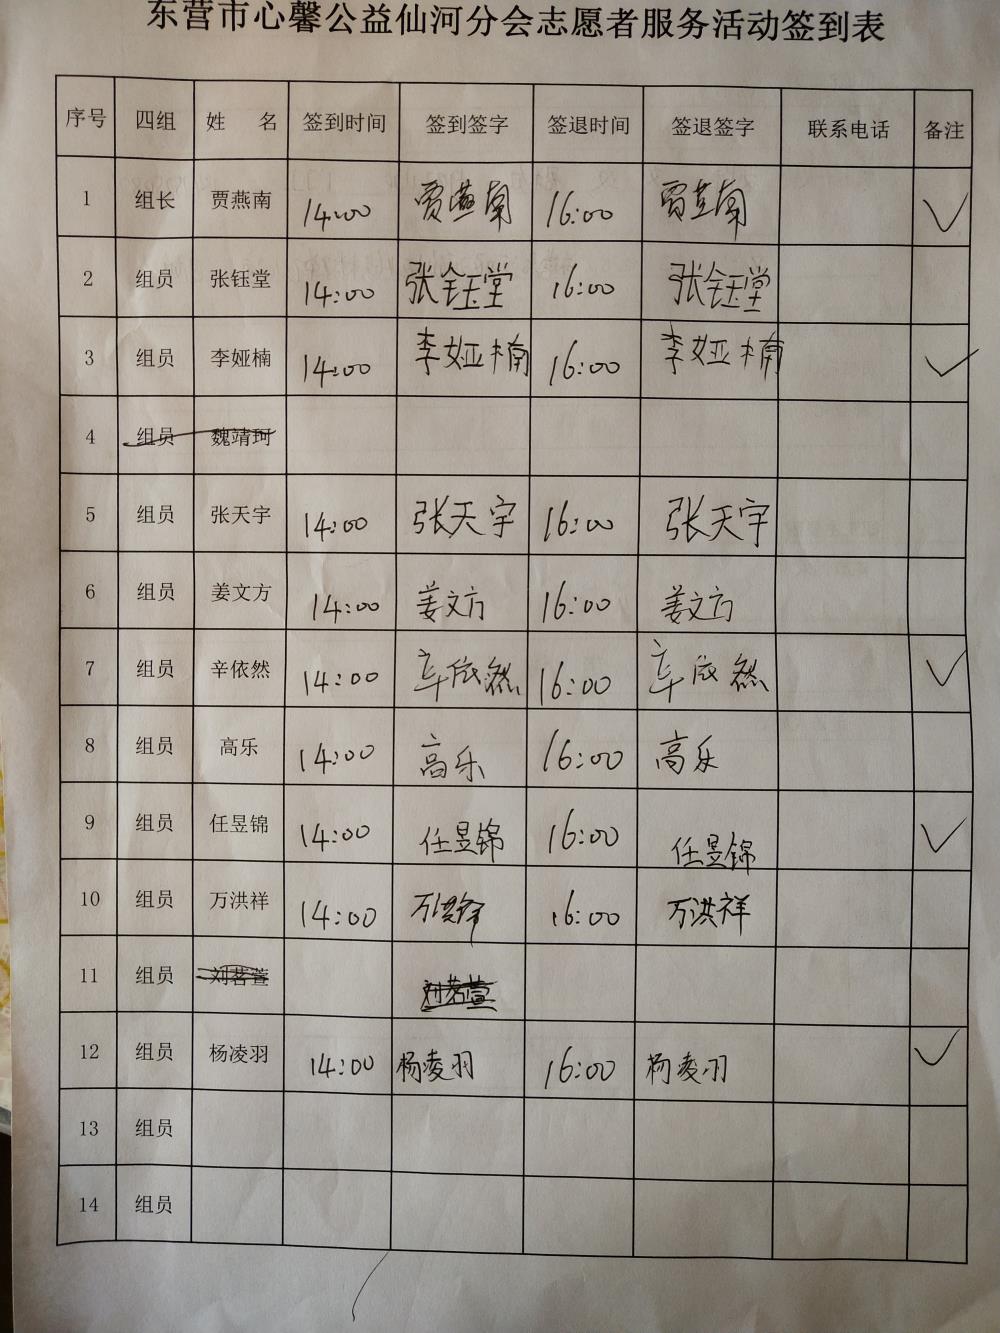 东营市心馨公益仙河分会志愿者服务活动签到表
序号 四组 姓 名 签到时间 签到签字 签退时间 签退签字 联系电话 备注
1 组长 贾燕南 14:00 贾燕南 16:00 贾燕南 ✓
2 组员 张钰堂 14:00 张钰堂 16:00 张钰堂
3 组员 李娅楠 14:00 李娅楠 16:00 李娅楠 ✓
4 组员 魏靖珂
5 组员 张天宇 14:00 张天宇 16:00 张天宇
6 组员 姜文方 14:00 姜文方 16:00 姜文方
7 组员 辛依然 14:00 辛依然 16:00 辛依然 ✓
8 组员 高乐 14:00 高乐 16:00 高乐
9 组员 任昱锦 14:00 任昱锦 16:00 任昱锦 ✓
10 组员 万洪祥 14:00 万洪祥 16:00 万洪祥
11 组员 刘茗萱 刘茗萱
12 组员 杨凌羽 14:00 杨凌羽 16:00 杨凌羽 ✓
13 组员
14 组员